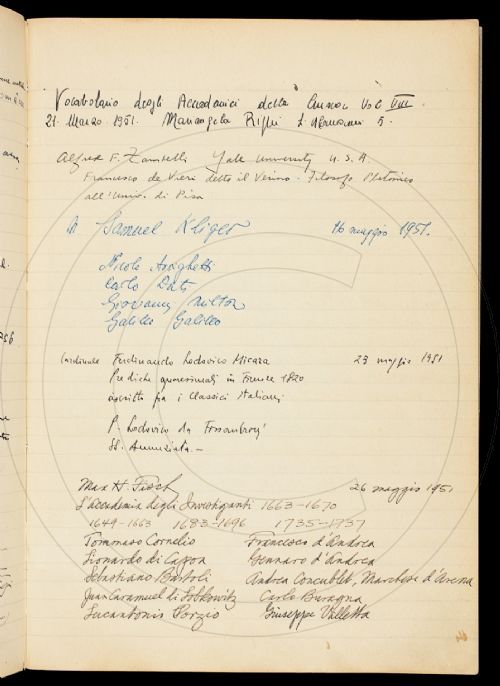 Vocabolario degli Accademici della Crusca Vol VIII.
21. Marzo. 1951. Mariangela Righi 5.
Alfred F. Yale University U. S. A.
Francesco de Vieri detto il Verino - Filosofo Platonico
all'Univ. di Pisa
Samuel Kliger 16 maggio 1951.
Nicolo Araghetti
Carlo Dati
Giovanni Milton
Galileo Galilei
Cardinale Ferdinando Lodovico Micara 23 maggio 1951
Prediche quaresimali in Firenze 1820
ascritto fra i classici italiani
P. Lodovico da
SS. Annunziata -
Max H. Fisch 26 maggio 1951
L'Accademia degli Investiganti 1663-1670
1649-1663 1683-1696 1735-1737
Tommaso Cornelio Francesco d'Andrea
Lionardo di Capoa Gennaro d'Andrea
Sebastiano Bartoli Andrea Concublet, Marchese d'Arena
Juan Caramuel di Lobkowitz Carlo Buragna
Lucantonio Porzio Giuseppe Valletta